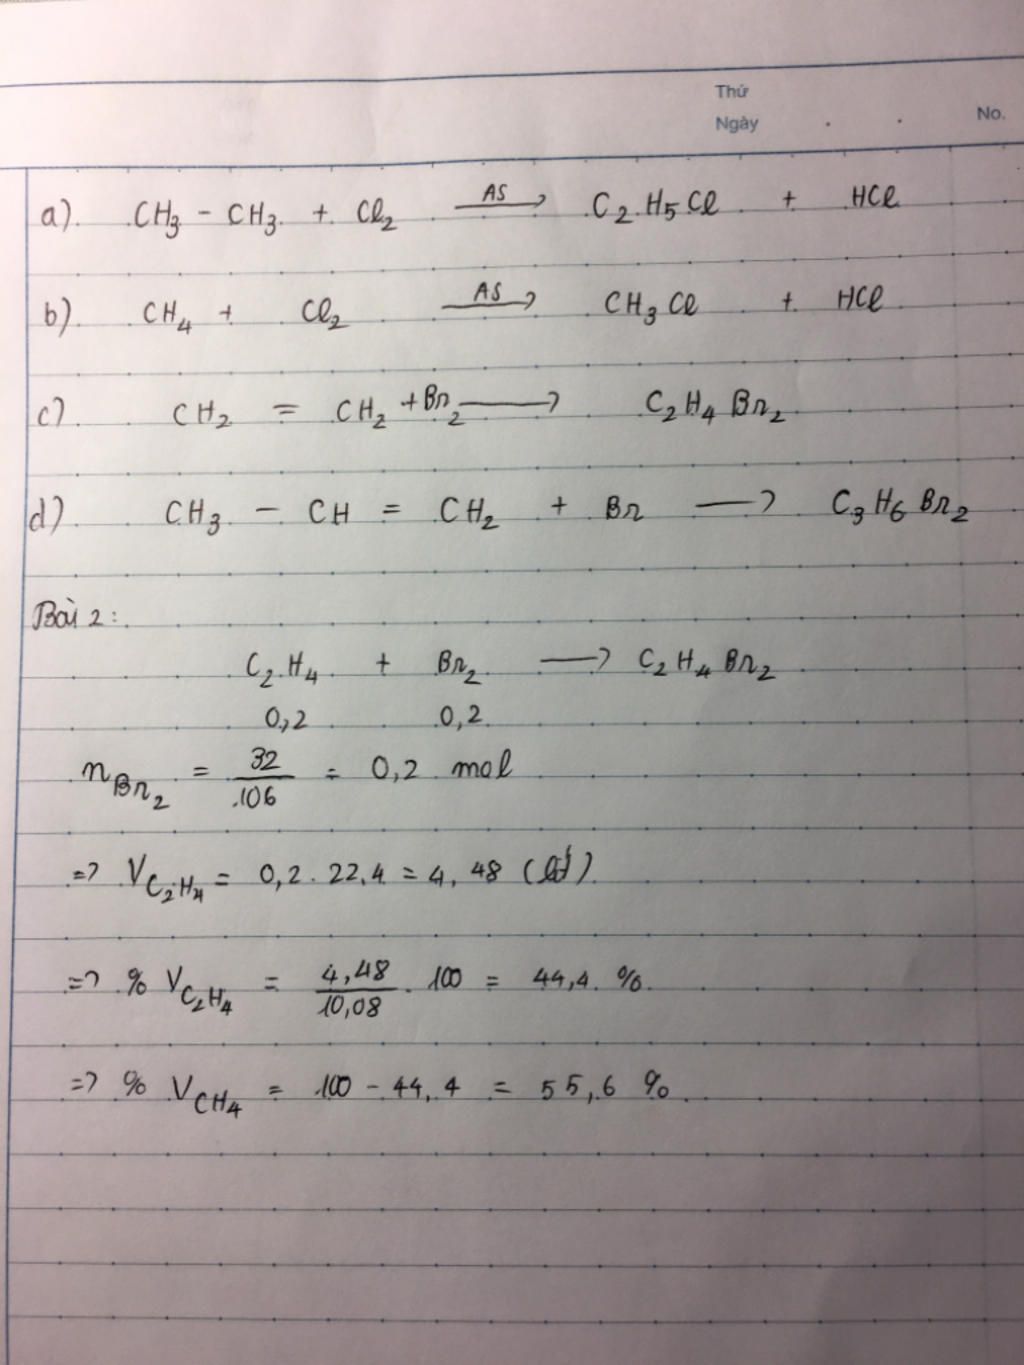 Thứ
Ngày . . No.
a) CH₃ - CH₃ + Cl₂ —AS→ C₂H₅Cl + HCl
b) CH₄ + Cl₂ —AS→ CH₃Cl + HCl
c) CH₂ = CH₂ + Br₂ ⟶ C₂H₄Br₂
d) CH₃ - CH = CH₂ + Br ⟶ C₃H₆Br₂
Bài 2:
C₂H₄ + Br₂ ⟶ C₂H₄Br₂
0,2 0,2
n_Br₂ = 32/106 = 0,2 mol
=> V_C₂H₄ = 0,2 . 22,4 = 4,48
=> % V_C₂H₄ = 4,48/10,08 . 100 = 44,4 %
=> % V_CH₄ = 100 - 44,4 = 55,6 %